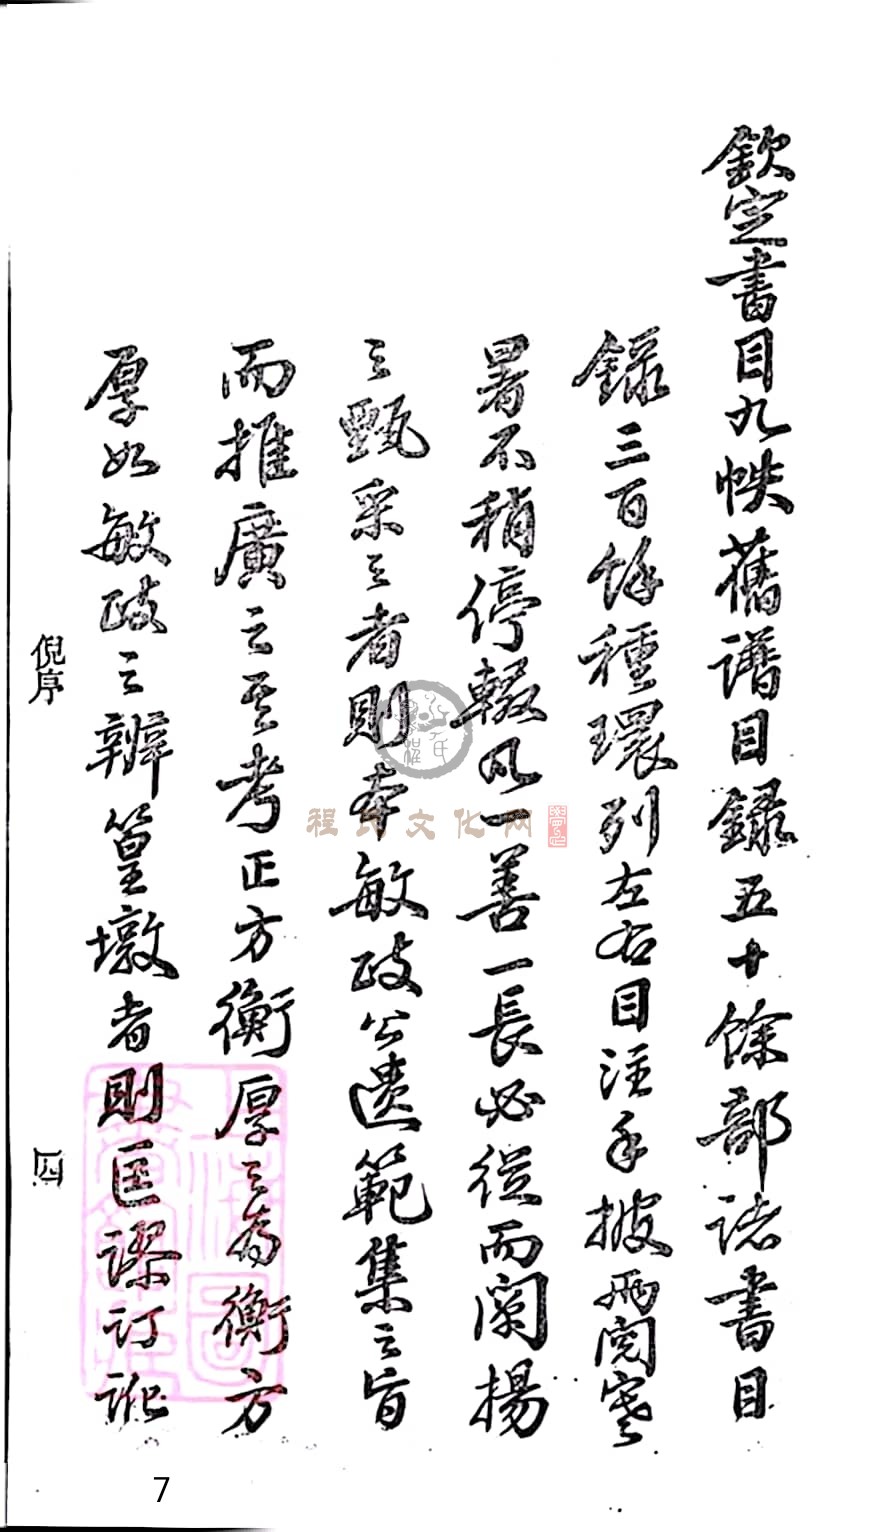 欽定書目九帙舊譜目録五十餘部諸書目
録三百餘種環列左右目注手披兩閲寒
暑不稍停輟凡一善一長必從而闡揚
之甄采之者則奉敏政公遺範集之旨
而推廣之至考正方衡厚之為衡方
厚如敏政之辨篁墩者則匡謬訂訛
倪序
四
程氏文化网
7